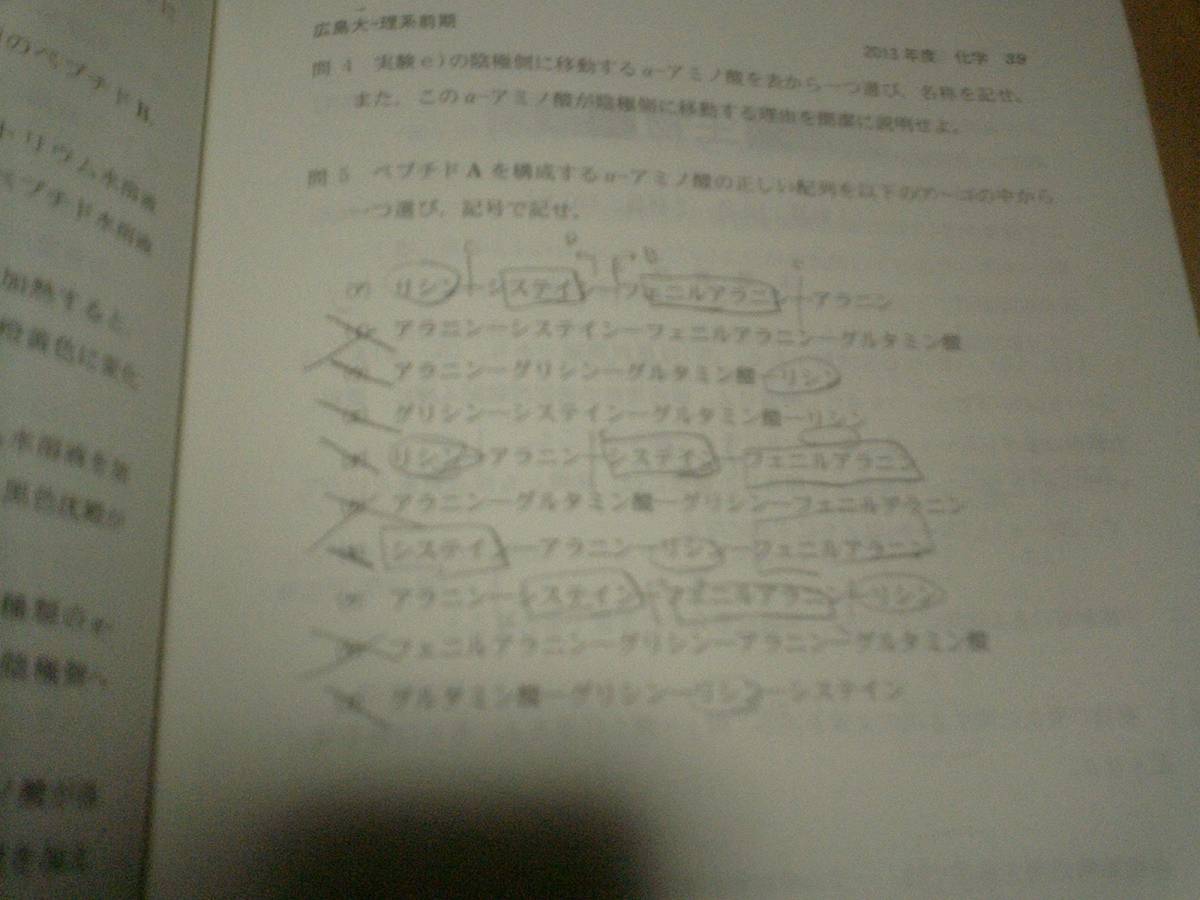 のペプチドB,
トリウム水溶液
ペプチド水溶液
加熱すると,
橙黄色に変化
水溶液を
黒色沈殿が
種類の
陰極側へ
広島大-理系前期
2013年度 化学 39
問 4 実験e)の陰極側に移動するα-アミノ酸を表から一つ選び,名称を記せ。
また,このα-アミノ酸が陰極側に移動する理由を簡潔に説明せよ。
問 5 ペプチドAを構成するα-アミノ酸の正しい配列を以下のア~コの中から
一つ選び,記号で記せ。
(ア) リシン―システイン―フェニルアラニン―アラニン
アラニン―システイン―フェニルアラニン―グルタミン酸
アラニン―グリシン―グルタミン酸―リシン
グリシン―システイン―グルタミン酸―リシン
リシン―アラニン―システイン―フェニルアラニン
アラニン―グルタミン酸―グリシン―フェニルアラニン
システイン―アラニン―リシン―フェニルアラニン
アラニン―システイン―フェニルアラニン―リシン
フェニルアラニン―グリシン―アラニン―グルタミン酸
グルタミン酸―グリシン―リシン―システイン